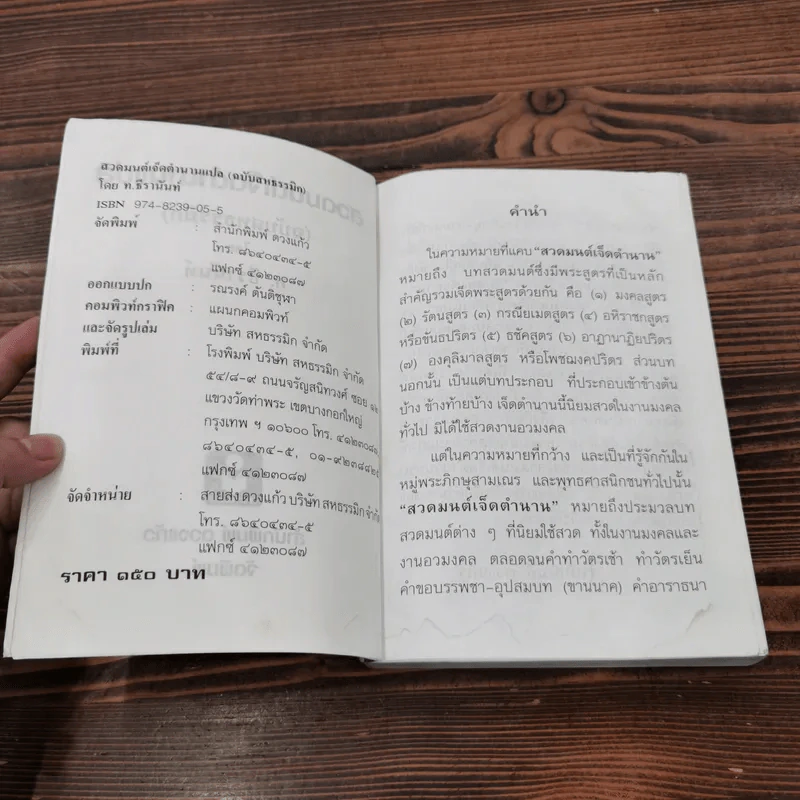 สวดมนต์เจ็ดตำนานแปล (ฉบับสหธรรมิก)
โดย ท.ธีรานันท์
ISBN 974-8239-05-5
จัดพิมพ์ : สำนักพิมพ์ ดวงแก้ว
โทร. ๘๖๔๐๔๓๔-๕
แฟกซ์ ๔๑๒๓๐๘๗
ออกแบบปก : รณรงค์ ตันติชุฬา
คอมพิวท์กราฟิค : แผนกคอมพิวท์
และจัดรูปเล่ม บริษัท สหธรรมิก จำกัด
พิมพ์ที่ : โรงพิมพ์ บริษัท สหธรรมิก จำกัด
๕๔/๘-๙ ถนนจรัญสนิทวงศ์ ซอย ๑๒
แขวงวัดท่าพระ เขตบางกอกใหญ่
กรุงเทพ ฯ ๑๐๖๐๐ โทร. ๔๑๒๓๐๘๗,
๘๖๔๐๔๓๔-๕,
แฟกซ์ ๔๑๒๓๐๘๗
จัดจำหน่าย : สายส่ง ดวงแก้ว บริษัท สหธรรมิก จำกัด
โทร. ๘๖๔๐๔๓๔-๕
แฟกซ์ ๔๑๒๓๐๘๗
ราคา ๑๕๐ บาท
คำนำ
ในความหมายที่แคบ "สวดมนต์เจ็ดตำนาน"
หมายถึง บทสวดมนต์ซึ่งมีพระสูตรที่เป็นหลัก
สำคัญรวมเจ็ดพระสูตรด้วยกัน คือ (๑) มงคลสูตร
(๒) รัตนสูตร (๓) กรณียเมตตสูตร (๔) อหิราชกสูตร
หรือขันธปริตร (๕) ธชัคสูตร (๖) อาฏานาฏิยปริตร
(๗) องคุลิมาลสูตร หรือโพชฌงคปริตร ส่วนบท
นอกนั้น เป็นแต่บทประกอบ ที่ประกอบเข้าข้างต้น
บ้าง ข้างท้ายบ้าง เจ็ดตำนานนี้นิยมสวดในงานมงคล
ทั่วไป มิได้ใช้สวดงานอวมงคล
แต่ในความหมายที่กว้าง และเป็นที่รู้จักกันใน
หมู่พระภิกษุสามเณร และพุทธศาสนิกชนทั่วไปนั้น
"สวดมนต์เจ็ดตำนาน" หมายถึงประมวลบท
สวดมนต์ต่าง ๆ ที่นิยมใช้สวด ทั้งในงานมงคลและ
งานอวมงคล ตลอดจนคำทำวัตรเช้า ทำวัตรเย็น
คำขอบรรพชา-อุปสมบท (ขานนาค) คำอาราธนา